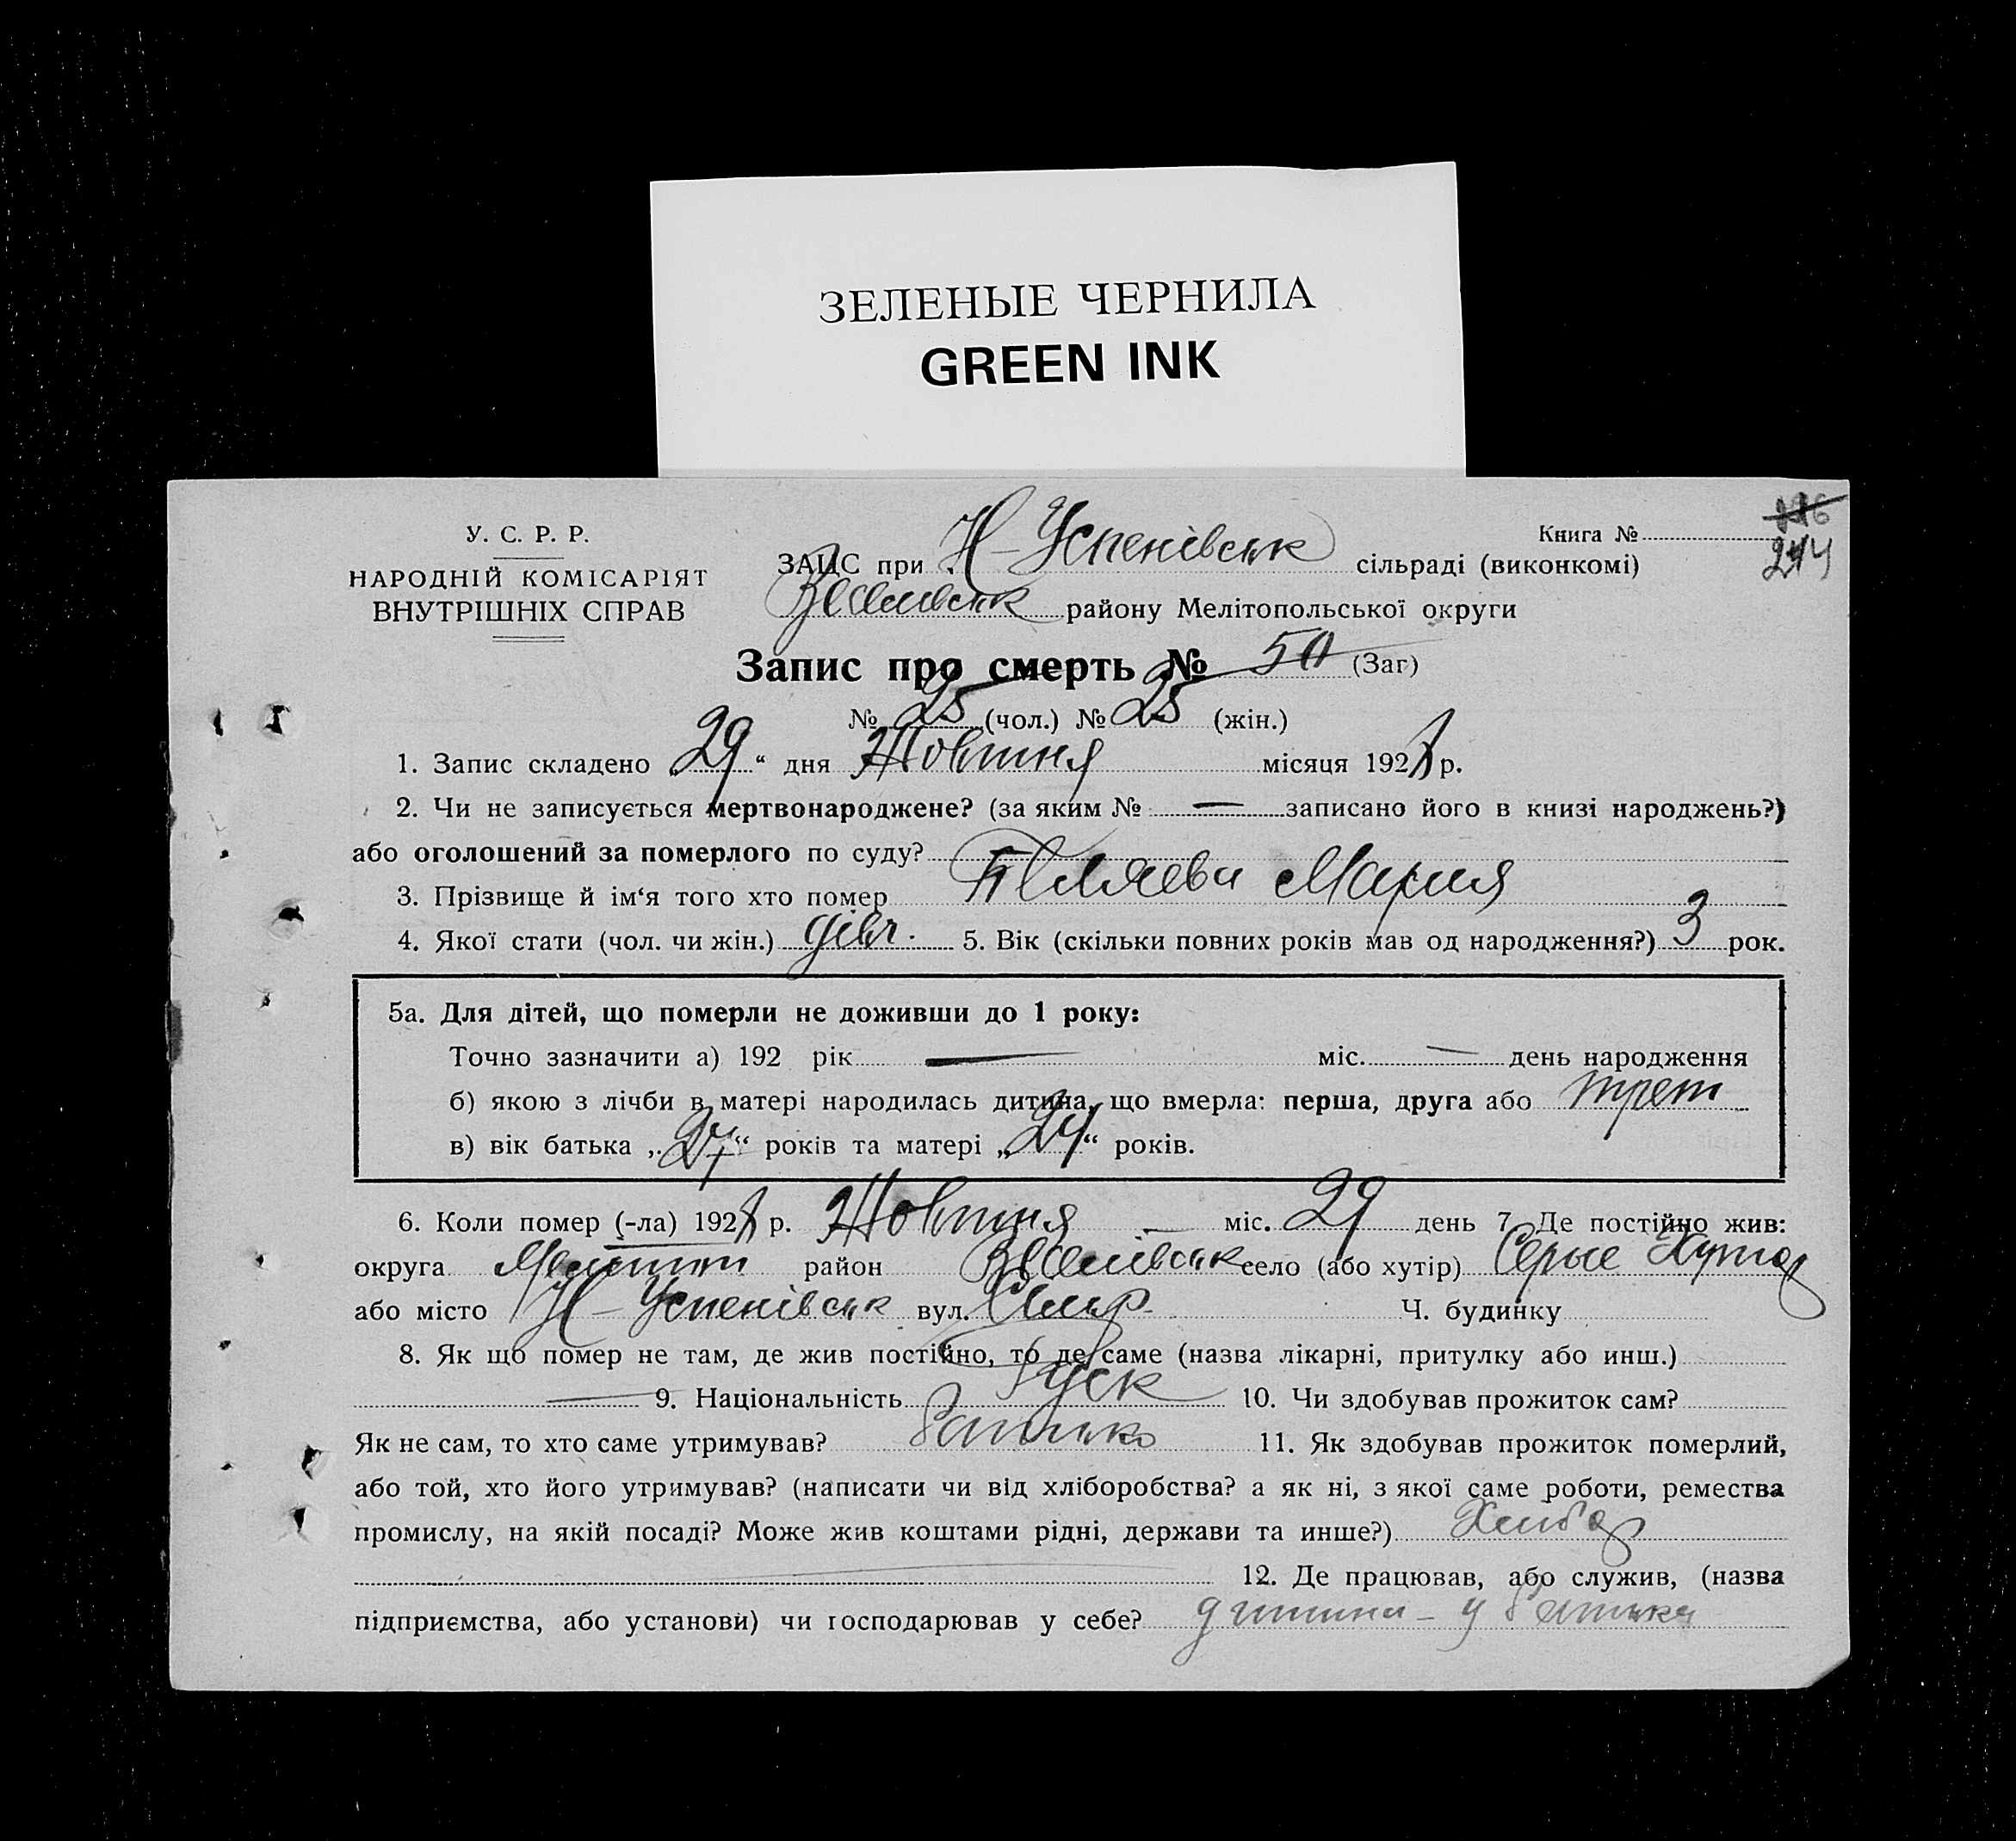 ЗЕЛЕНЫЕ ЧЕРНИЛА
GREEN INK
У. С. Р. Р.
НАРОДНІЙ КОМІСАРІЯТ
ВНУТРІШНІХ СПРАВ
Книга №
274
ЗАЦС при Н-Успенівськ сільраді (виконкомі)
району Мелітопольської округи
Запис про смерть № 50 (Заг)
№ 25 (чол.) № 25 (жін.)
1. Запис складено „29“ дня Жовтня місяця 192 р.
2. Чи не записується мертвонароджене? (за яким № — записано його в книзі народжень?)
або оголошений за померлого по суду?
3. Прізвище й ім‘я того хто помер Мария
4. Якої стати (чол. чи жін.) дівч. 5. Вік (скільки повних років мав од народження?) 3 рок.
5а. Для дітей, що померли не доживши до 1 року:
Точно зазначити а) 192 рік — міс. — день народження
б) якою з лічби в матері народилась дитина, що вмерла: перша, друга або трет
в) вік батька „27“ років та матері „24“ років.
6. Коли помер (-ла) 192 р. Жовтня — міс. 29 день 7. Де постійно жив:
округа Мелитоп район село (або хутір) Серые Хутор
або місто Н-Успенівськ вул. Ч. будинку
8. Як що помер не там, де жив постійно, то де саме (назва лікарні, притулку або инш.)
— 9. Національність Руск 10. Чи здобував прожиток сам?
Як не сам, то хто саме утримував? батько 11. Як здобував прожиток померлий,
або той, хто його утримував? (написати чи від хліборобства? а як ні, з якої саме роботи, ремества
промислу, на якій посаді? Може жив коштами рідні, держави та инше?) Хлібор
12. Де працював, або служив, (назва
підприємства, або установи) чи господарював у себе? дитина - у батька